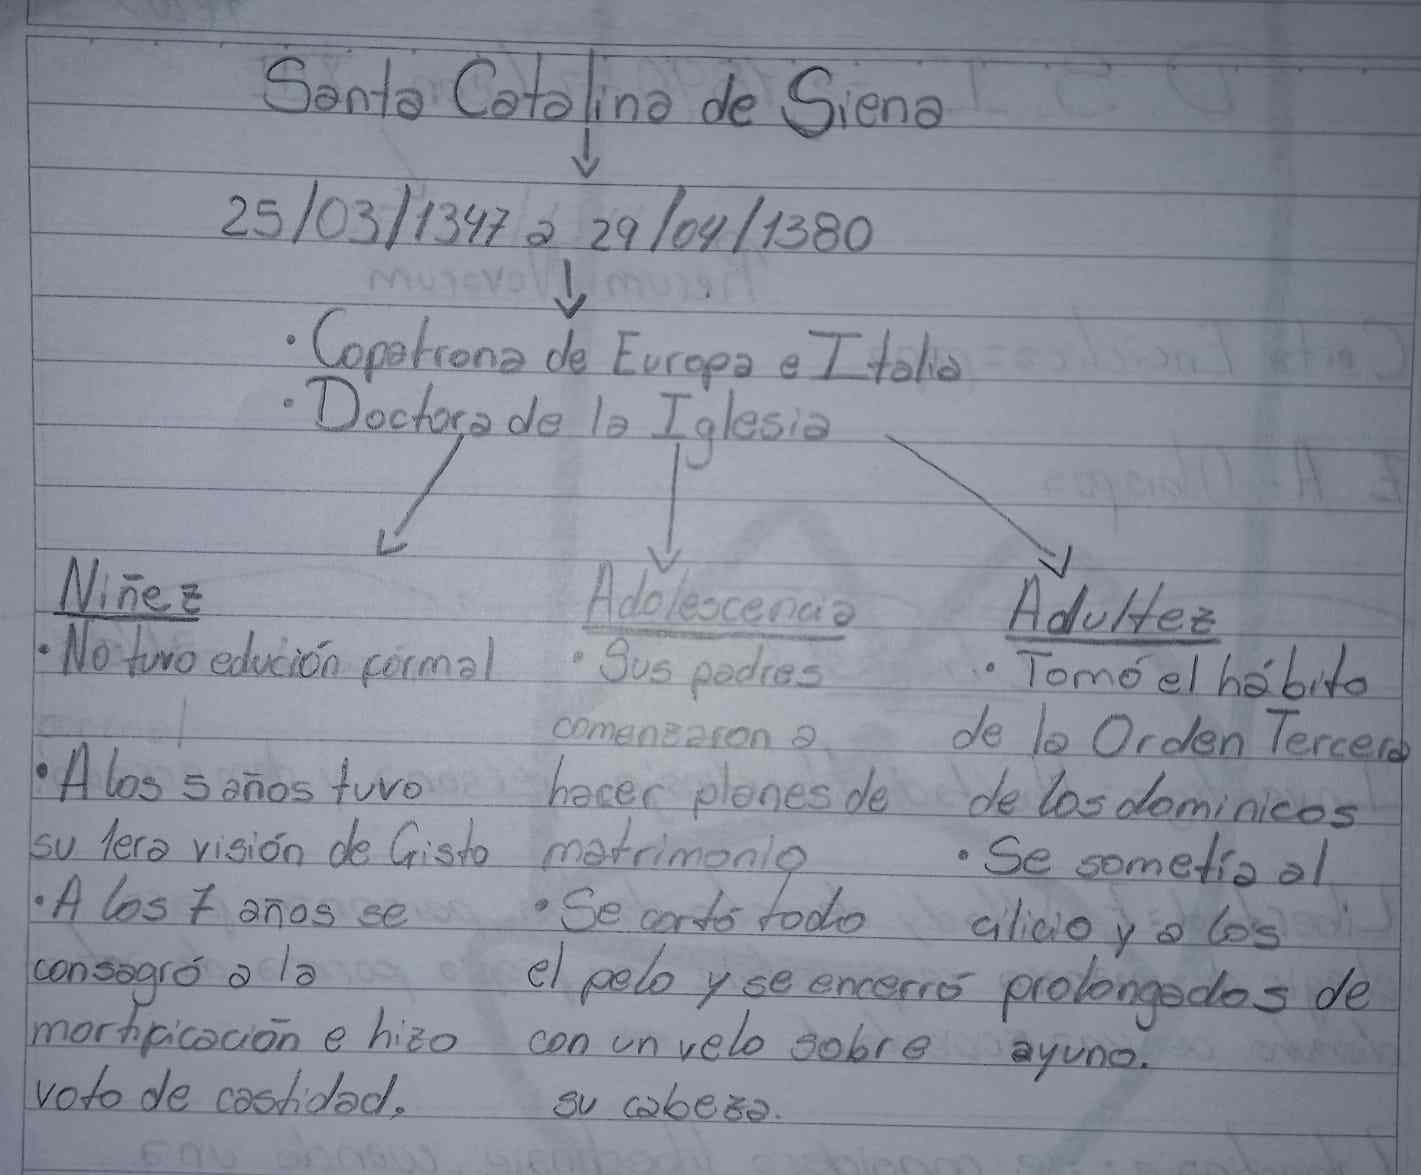 Santa Catalina de Siena
25/03/1347 a 29/04/1380
· Copatrona de Europa e Italia
· Doctora de la Iglesia
Niñez
· No tuvo edución formal
· A los 5 años tuvo
su 1era visión de Cristo
· A los 7 años se
consagró a la
mortificación e hizo
voto de castidad.
Adolescencia
· Sus padres
comenzaron a
hacer planes de
matrimonio
· Se cortó todo
el pelo y se encerró
con un velo sobre
su cabeza.
Adultez
· Tomó el hábito
de la Orden Tercera
de los dominicos
· Se sometía al
cilicio y a los
prolongados de
ayuno.